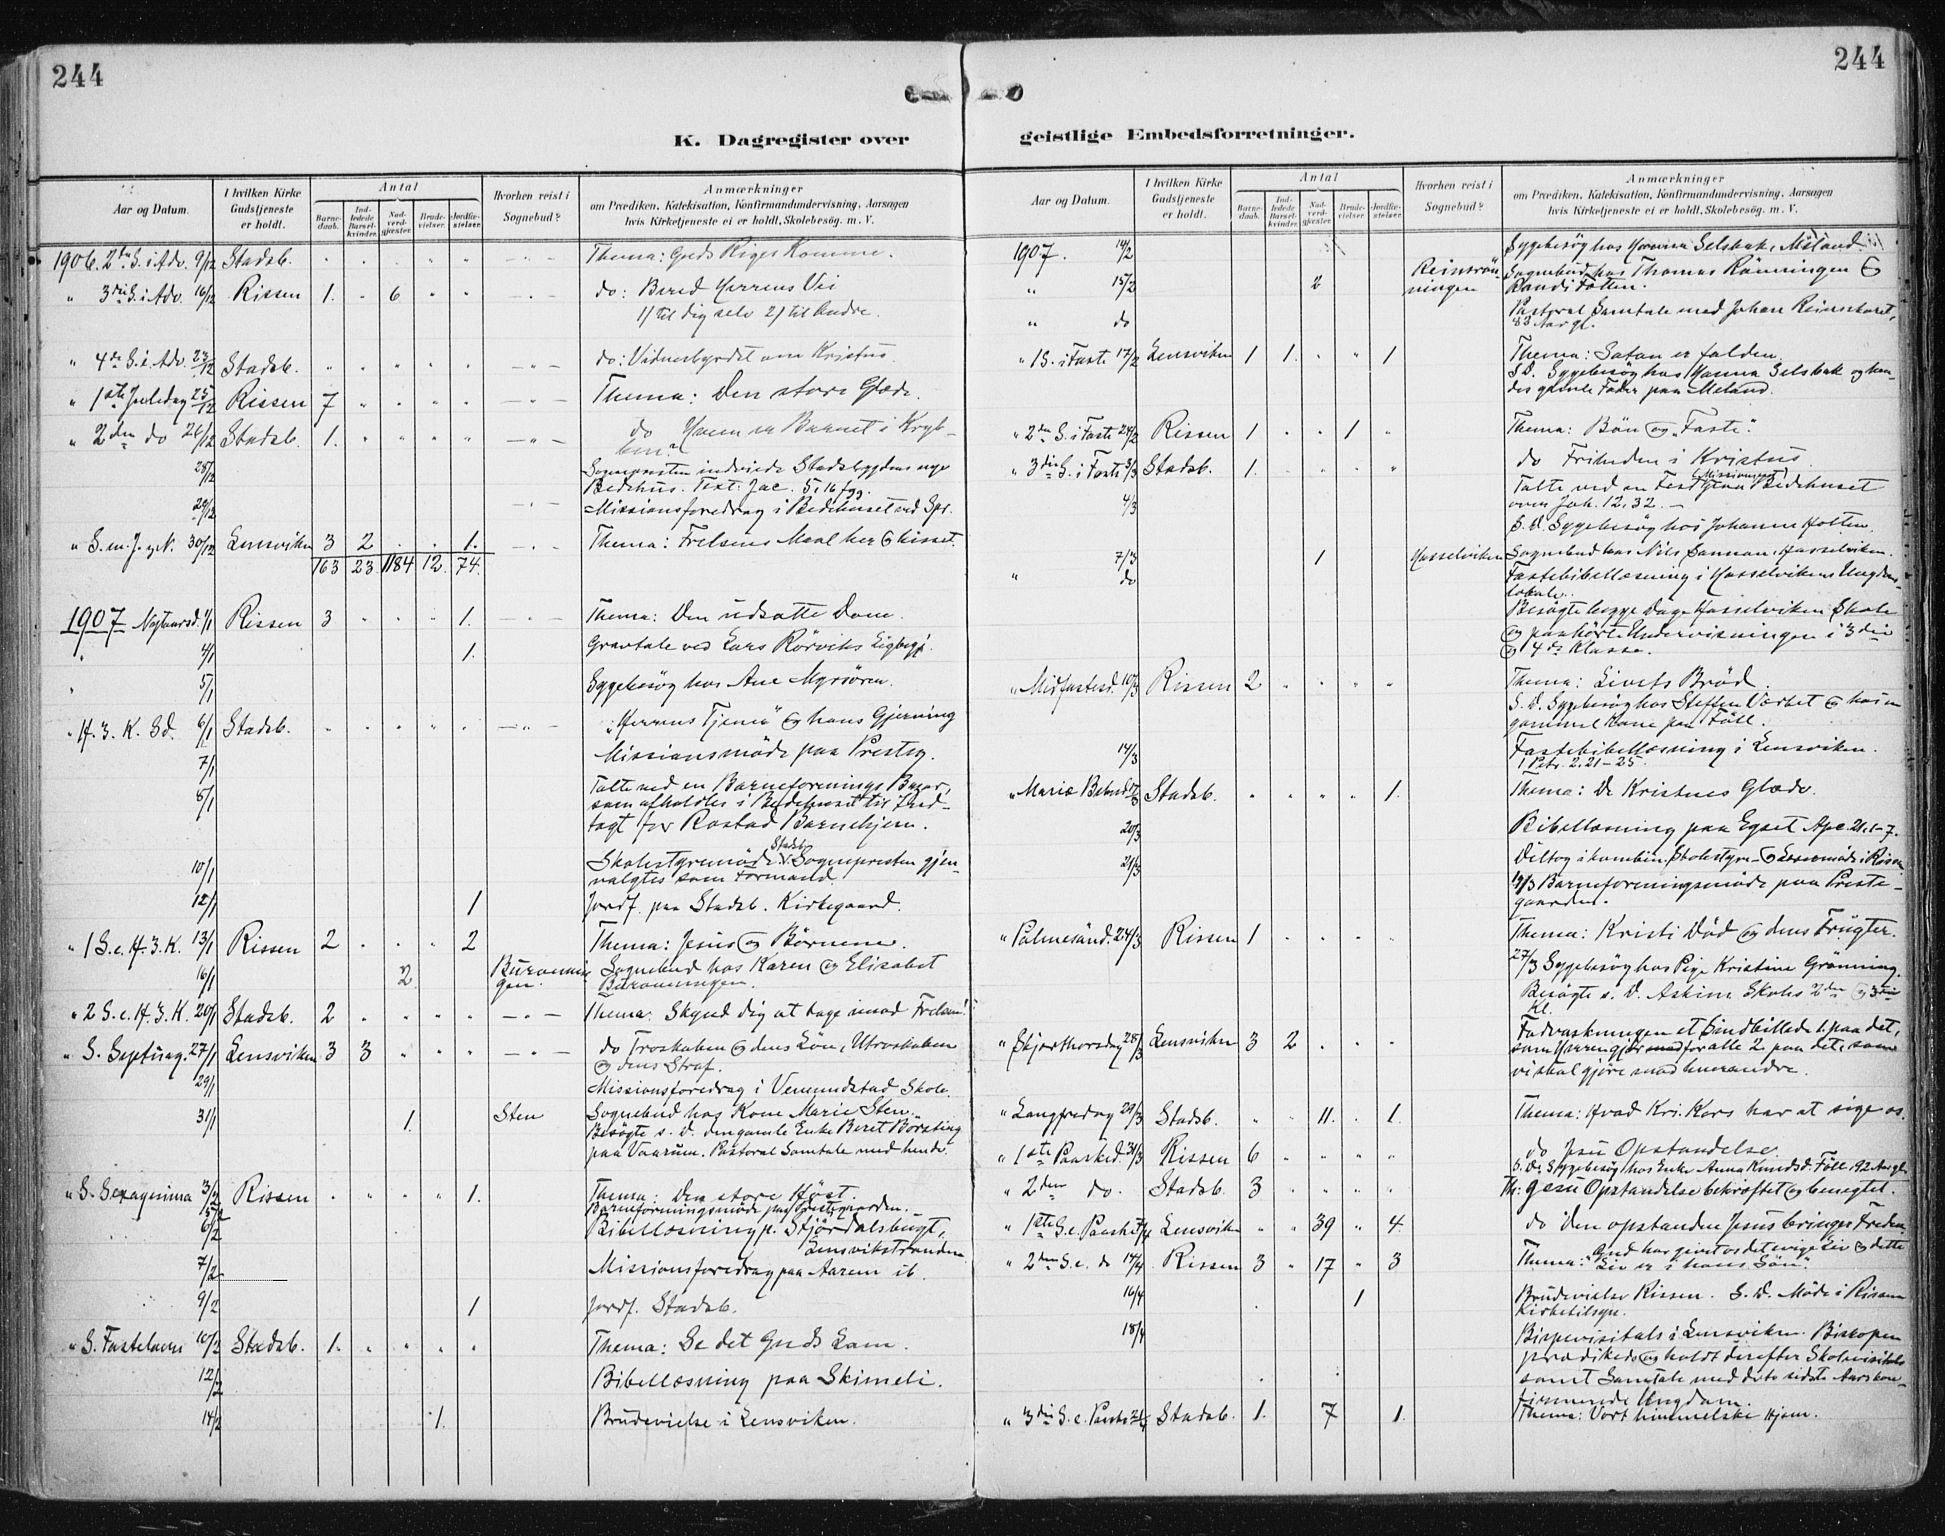 244
244
K. Dagregister over
geistlige Embedsforretninger.
Aar og Datum.
I hvilken Kirke Gudstjeneste er holdt.
Antal
Barnedaab.
Indledede Barselkvinder.
Nadverdgjæster.
Brudevielser.
Jordfæstelser.
Hvorhen reist i Sognebud?
Anmærkninger
om Prædiken, Katekisation, Konfirmandundervisning, Aarsagen
hvis Kirketjeneste ei er holdt, Skolebesøg. m. V.
1906. 2den S. i Adv. 9/12 Stadsb. Thema: Guds Riges Komme.
" 3die S. i Adv. 16/12 Rissen 1. 6 do: Bered Herrens Vei
1) til dig selv 2) til andre.
" 4de S. i Adv. 23/12 Stadsb. do: Vidnesbyrdet om Kristus.
" 1ste Juledag 25/12 Rissen 7 Thema: Den store Glæde.
" 2den do 26/12 Stadsb. 1. do Hvem er Barnet i Kryb-
ben?
28/12 Sognepresten indviede Stadsbygdens nye
Bedehus. Text: Jac. 5,16 fgg.
29/12 Missionsforedrag i Bedehuset ved Spr.
" S. m. J. og N. 30/12 Lensviken 3 2 1. Thema: Frelsens Maal her & hisset.
163 23 1184 12. 74.
1907 Nytaarsd. 1/1 Rissen 3 1. Thema: Den udsatte Dom.
" 4/1 1. Gravtale ved Lars Rörviks Ligbegj.
" 5/1 Sygebesøg hos Ane Myrsören.
" H. 3. K. Sd. 6/1 Stadsb. "Herrens Tjener" & hans Gjerning
7/1 Missionsmöde paa Prestg.
8/1 Talte ved en Barneforenings Bazar,
som afholdtes i Bedehuset til Ind-
tægt for Rostad Barnehjem.
10/1 Skolestyremöde Stadsb. Sognepresten gjen-
valgtes som Formand.
12/1 1 Jordf. paa Stadsb. Kirkegaard.
" 1 S. e. H. 3. K. 13/1 Rissen 2 2 Thema: Jesus og Börnene.
16/1 2 Sognebud hos Karen og Elisabet
" 2 S. e. H. 3. K. 20/1 Stadsb. 2 Thema: Skynd dig at tage imod Frelsen!
" S. Septuag. 27/1 Lensviken 3 3 do Troskaben & dens Lön, Utroskaben
& dens Straf.
29/1 Missionsforedrag i Vemundstad Skole.
31/1 1. Sten Sognebud hos Kone Marie Sten.
Besøgte s. D. den gamle Enke Beret Börsting
paa Vaarum. Pastoral Samtale med hende.
" S. Sexagesima 3/2 Rissen 1. Thema: Den store Höst.
5/2 Barneforeningsmöde paa Prestegaarden.
6/2 Bibellæsning p. Stjördalsbugt,
Lensvikstranden
7/2 Missionsforedrag paa Aarem ib.
9/2 1 Jordf. Stadsb.
" S. Fastelavn 10/2 Stadsb. 1. Thema: Se det Guds Lam.
12/2 Bibellæsning paa Skimeli.
14/2 1. Brudevielse i Lensviken.
Aar og Datum.
I hvilken Kirke Gudstjeneste er holdt.
Antal
Barnedaab.
Indledede Barselkvinder.
Nadverdgjæster.
Brudevielser.
Jordfæstelser.
Hvorhen reist i Sognebud?
Anmærkninger
om Prædiken, Katekisation, Konfirmandundervisning, Aarsagen
hvis Kirketjeneste ei er holdt, Skolebesøg. m. V.
1907. 14/2 Sygebesøg hos Selsbak, Meland
" 15/2 2 Reinsrön-
ningen Sognebud hos Thomas Rönningen &
Randi Fötten.
" do Pastoral Samtale med Johan Reinskaret,
83 Aar gl.
" 1 S. i Faste 17/2 Lensviken 1 1. 1 Thema: Satan er falden.
S.D. Sygebesøg hos Hanna Selsbak og hen-
des gamle Fader paa Meland.
" 2den S. i Faste 24/2 Rissen 1 1 Thema: Bön og "Faste".
" 3die S. i Faste 3/3 Stadsb. 1. do Friheden i Kristus
4/3 Talte ved en Fest (Missionsfest) paa Bedehuset
over Joh. 12, 32. -
S. D. Sygebesøg hos Johanne Hotten.
7/3 1 Hasselviken Sognebud hos Nils Sannan, Hasselviken.
" do Fastebibellæsning i Hasselvikens Ungdoms-
lokale.
Besøgte begge Dage Hasselviken Skole
og paahörte Undervisningen i 3die
og 4de Klasse.
" Midfastesd. 10/3 Rissen 2 Thema: Livets Bröd.
S. D. Sygebesøg hos Steffen Værbet & hos en
gammel Kone paa Föll.
14/3 Fastebibellæsning i Lensviken.
1 Petr. 2, 21-25.
" Mariæ Bebud. 17/3 Stadsb. 1. Thema: De Kristnes Glæde.
20/3 Bibellæsning paa Egset Apc. 21, 1-7.
21/3 Deltog i kombin. Skolestyre- & möde i Rissen
19/3 Barneforeningsmöde paa Preste-
gaarden.
" Palmesönd. 24/3 Rissen 1 Thema: Kristi Död og dens Frugter.
27/3 Sygebesøg hos Pige Kristine Grönning.
Besøgte s. D. Askim Skoles 2den og 3die
Kl.
" Skjærthorsdag 28/3 Lensviken 3 2 Fodvaskningen et Sindbillede 1. paa det,
som Herren gjör for alle 2. paa det, som
vi skal gjöre mod hverandre.
" Langfredag 29/3 Stadsb. 11. 1. Thema: Hvad Kri. Kors har at sige os.
" 1ste Paasked. 31/3 Rissen 6 do Jesu Opstandelse.
S. D. Sygebesøg hos Enke Anna Knudsd. Föll, 92 Aar gl.
" 2den do. Stadsb. 3 Th: Jesu Opstandelse bekræftet og benegtet.
" 1ste S. e. Paaske 7/4 Lensviken 39 4. do Den opstanden Jesus bringer Freden
" 2den S. e. do 14/4 Rissen 3 17 3 Thema: "Gud har givet os det evige Liv & dette
Liv er i hans Sön".
16/4 1 Brudevielse Rissen. S. D. Möde i Rissens
Kirketilsyn.
18/4 Bispevisitats i Lensviken. Biskopen
prædikede og holdt derefter Skolevisitats
samt Samtale med de to sidste Aars kon-
firmerede Ungdom.
" 3die S. e. Paaske 21/4 Stadsb. 1. 7 1. Thema: Vort himmelske Hjem.